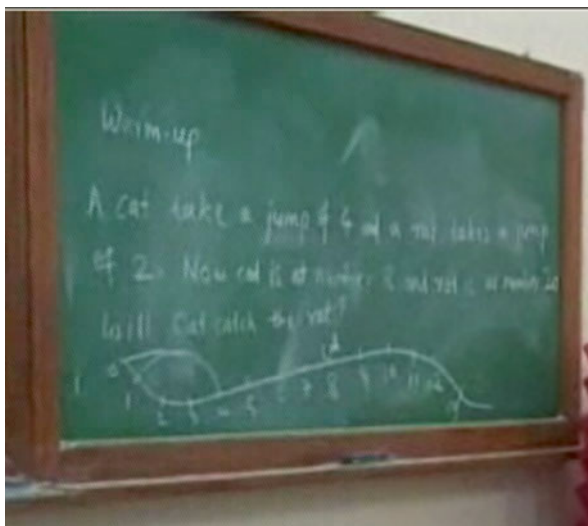 Warm-up
A cat take a jump of 4 and a rat takes a jump
of 2. Now cat is at number 8 and rat is at number 20
Will Cat catch the rat?
0 1 2 3 4 5 6 7 8 9 10 11 12